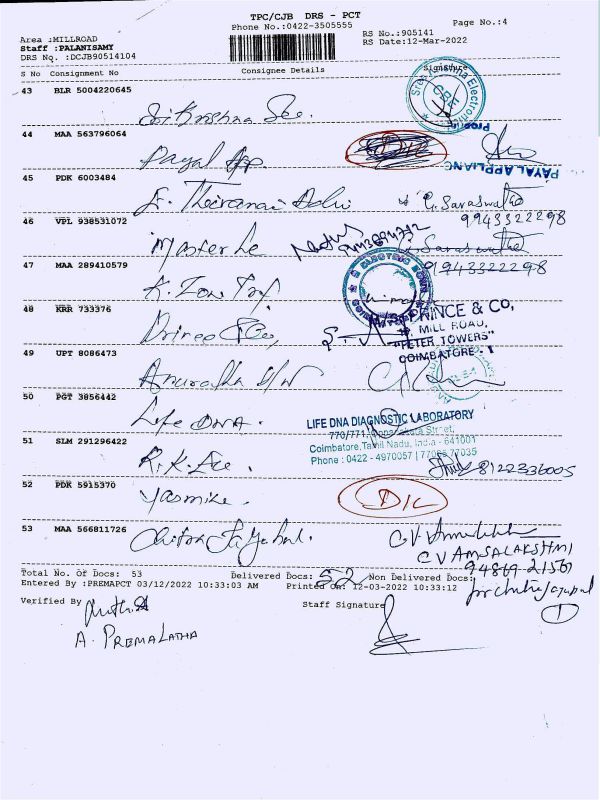 TPC/CJB DRS - PCT
Phone No.:0422-3505555
Page No.:4
Area :MILLROAD
RS No.:905141
Staff :PALANISAMY
RS Date:12-Mar-2022
DRS No. :DCJB90514104
S No Consignment No Consignee Details Signature
43 BLR 5004220645
Sri Krishna
Sree Krishna Electronics
CBE
44 MAA 563796064
Payal App
D/L
PAYAL APPLIANC
45 PDK 6003484
G. Saraswathi
9943322298
46 VPL 938531072
Master
G. Saraswathi
9943322298
47 MAA 289410579
K. Zone
48 KRR 733376
Prince & Co,
PRINCE & CO,
MILL ROAD,
"PETER TOWERS"
COIMBATORE - 1
49 UPT 8086473
Anuradha
50 PGT 3856442
Life DNA.
LIFE DNA DIAGNOSTIC LABORATORY
770/771, Street,
Coimbatore, Tamil Nadu, India - 641001
Phone : 0422 - 4970057 | 77086 77035
51 SLM 291296422
R.K.
8122336005
52 PDK 5915370
Yasmine.
D/L
53 MAA 566811726
Chitra Jayabal.
C V AMSALAKSHMI
94869-21567
for Chitra Jayabal
1
Total No. Of Docs: 53 Delivered Docs: 52 Non Delivered Docs:
Entered By :PREMAPCT 03/12/2022 10:33:03 AM Printed On: 12-03-2022 10:33:12
Verified By
Staff Signature
A. PREMALATHA